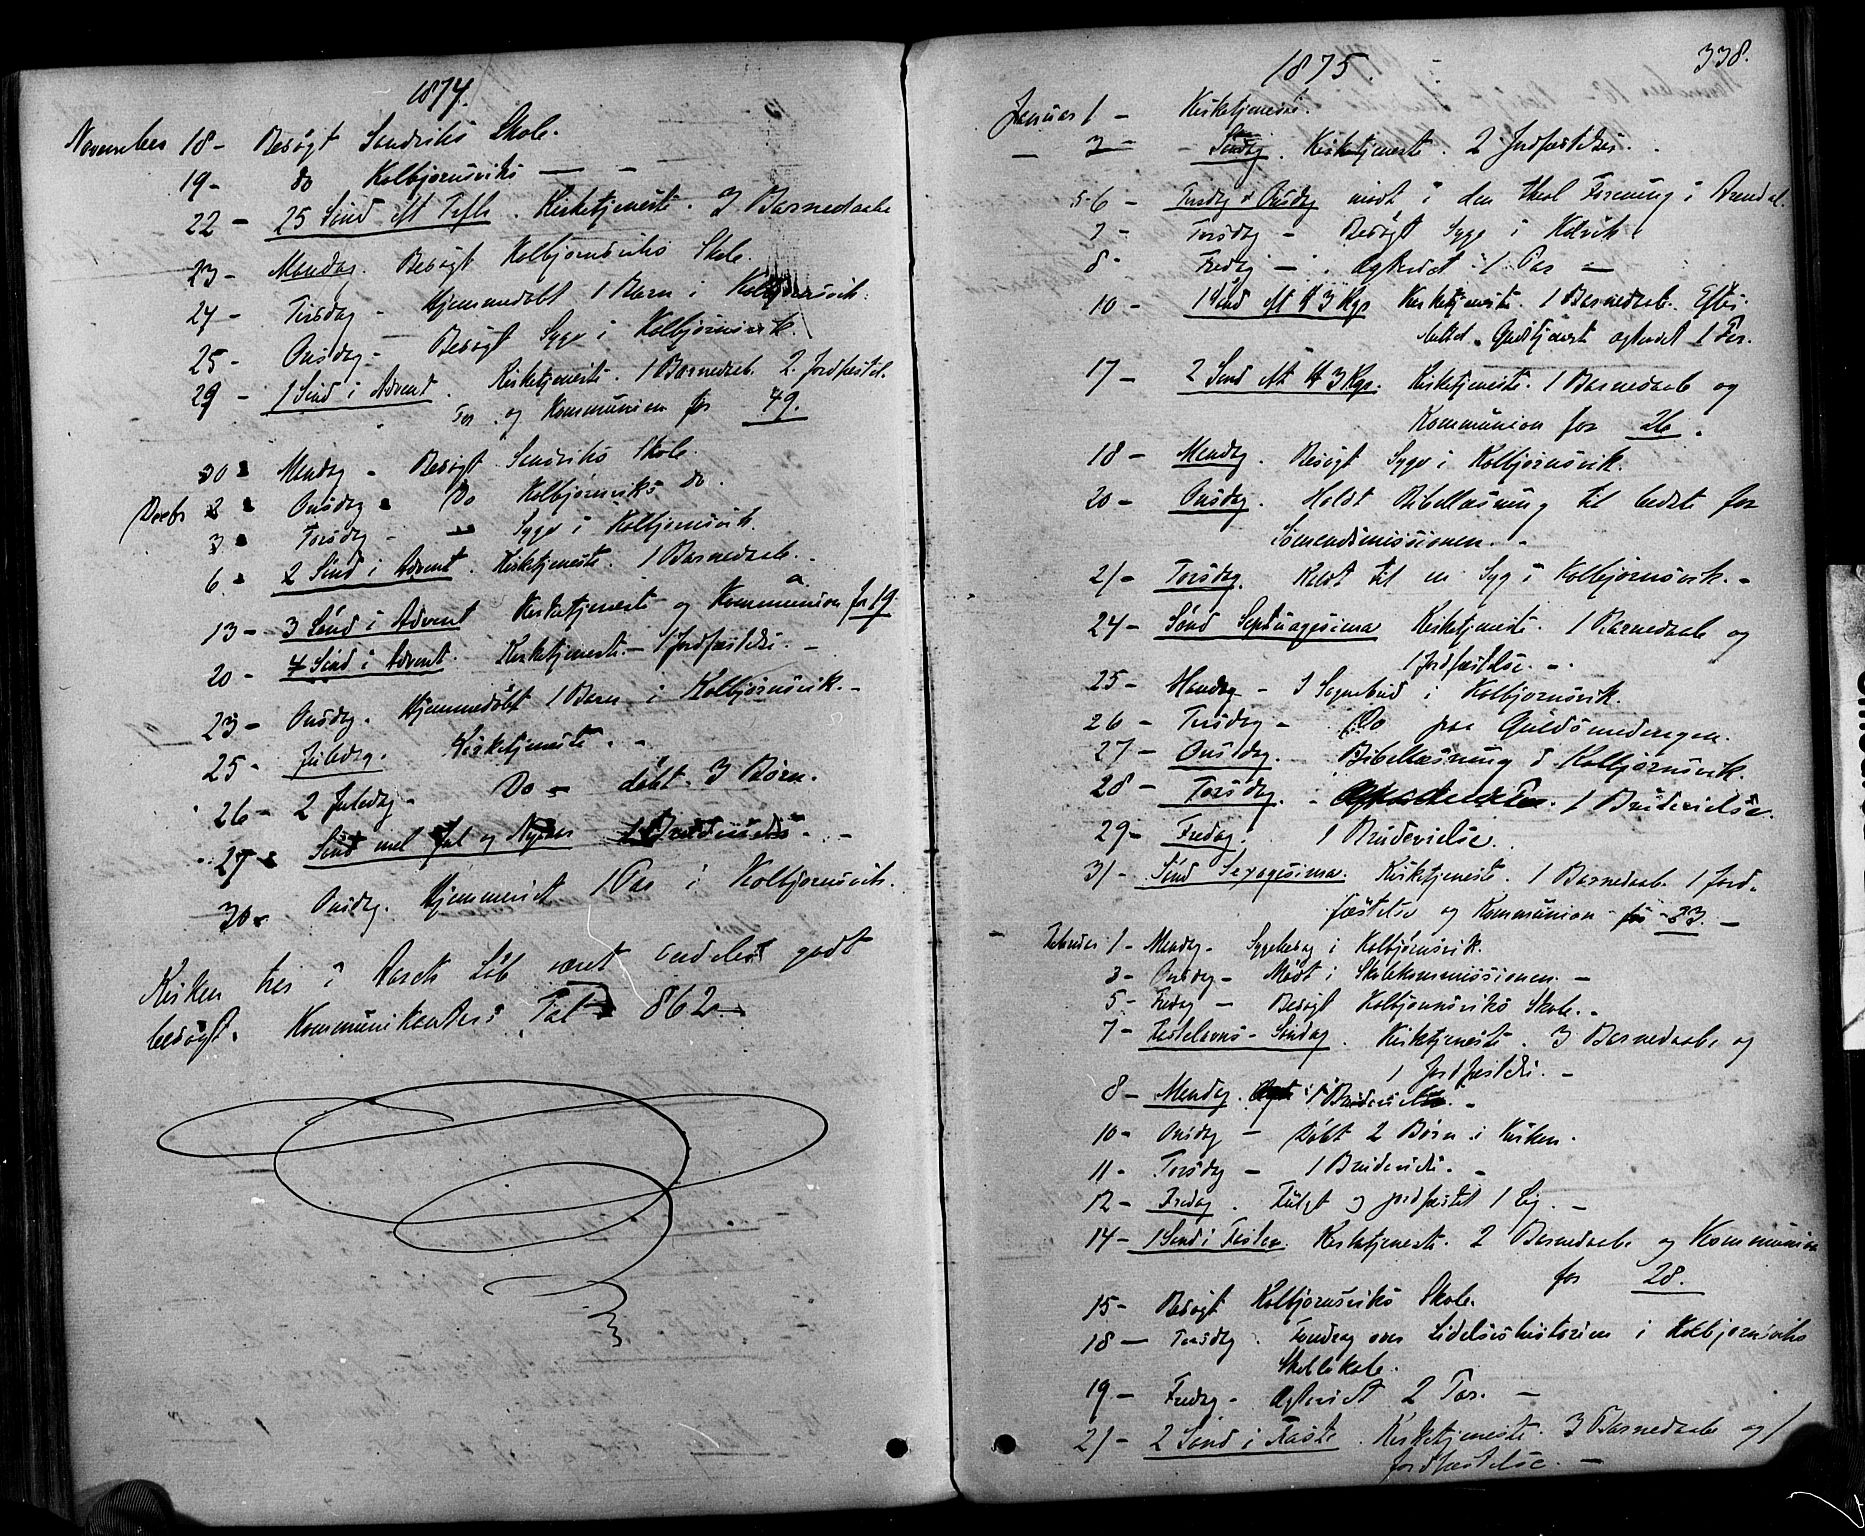 1874.
November 18 - Besøgt Sandviks Skole.
19 - do Kolbjørnsviks — -
22 - 25 Sønd. e. Tref. Kirketjeneste. 3 Barnedaabe
23 - Mandag. Besøgt Kolbjørnsviks Skole.
24 - Tirsdag - Hjemmedøbt 1 Barn i Kolbjørnsvik.
25 - Onsdag - Besøgt Syge i Kolbjørnsvik.
29 - 1 Sønd i Advent. Kirketjeneste. 1 Barnedaab. 2 Jordfæstel.
og Kommunion for 49.
30 - Mandag - Besøgt Sandviks Skole.
Decbr 2 - Onsdag - Do Kolbjørnsviks do.
3 - Torsdag - — Syge i Kolbjørnsvik.
6 - 2 Sønd i Advent. Kirketjeneste. 1 Barnedaab. -
13 - 3 Sønd i Advent Kirketjeneste og Kommunion for 19
20 - 4 Sønd i Advent. Kirketjeneste - 1 Jordfæstelse. -
23 - Onsdag. Hjemmedøbt 1 Barn i Kolbjørnsvik. -
25 - Juledag. Kirketjeneste. -
26 - 2 Juledag - Do - døbt 3 Børn.
27 - Sønd mel Jul og Nytaar 1 Brudevielse. -
30 - Onsdag. Hjemmeviet 1 Par i Kolbjørnsvik.
Kirken har i Aarets Løb været særdeles godt
besøgt. Kommunikanters Tal - 862 -
338.
1875.
Januar 1 - Kirketjeneste.
— 3 - Søndag. Kirketjeneste. 2 Jordfæstelser.
5-6 - Tirsdag & Onsdag mødt i den theol Forening i Arendal.
7 - Torsdag - Besøgt Syge i Kolvik.
8 - Fredag - Ægteviet 1 Par -
10 - 1 Sønd Aft H 3 Kgr Kirketjeneste 1 Barnedaab. Efter
Gudstjenest ægteviet 1 Par.
17 - 2 Sønd Aft H 3 Kgr. Kirketjeneste. 1 Barnedaab og
Kommunion for 26.
18 - Mandag. Besøgt Syge i Kolbjørnsvik.
20 - Onsdag. Holdt Bibellæsning til bedste for
Sømandsmissionen. -
21 - Torsdag. Kaldt til en Syg i Kolbjørnsvik. -
24 - Sønd Septuagesima Kirketjeneste. 1 Barnedaab og
1 Jordfæstelse. -
25 - Mandag - 1 Sognebud i Kolbjørnsvik.
26 - Tirsdag - Do paa Guldsmedengen.
27 - Onsdag. - Bibellæsning i Kolbjørnsvik.
28 - Torsdag. - 1 Brudevielse.
29 - Fredag. 1 Brudevielse.
31 - Sønd Sexagesima. Kirketjeneste. 1 Barnedaab 1 Jord-
fæstelse og Kommunion for 23. -
Februar 1 - Mandag - Sygebesøg i Kolbjørnsvik.
3 - Onsdag - Mødt i Skolekommissionen. -
5 - Fredag - Besøgt Kolbjørnsviks Skole. -
7 - Fastelavns-Søndag. Kirketjeneste. 3 Barnedaabe og
1 Jordfæstelse. -
8 - Mandag. 1 Brudevielse. -
10 - Onsdag - Døbt 2 Børn i Kirken.
11 - Torsdag - 1 Brudevielse. -
12 - Fredag. Fulgt og jordfæstet 1 Lig. -
14 - 1 Sønd i Fasten. Kirketjeneste. 2 Barnedaabe og Kommunion
for 28.
15 - Besøgt Kolbjørnsviks Skole.
18 - Torsdag. Foredrag over Lidelseshistorien i Kolbjørnsviks
Skolelokale.
19 - Fredag - Ægteviet 2 Par. -
21 - 2 Sønd i Faste. Kirketjeneste. 3 Barnedaabe og 1
Jordfæstelse. -